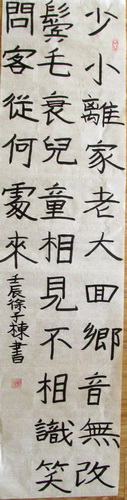 少小離家老大囬鄉音無改
鬢毛衰兒童相見不相識笑
問客從何處來
壬辰徐子棟書